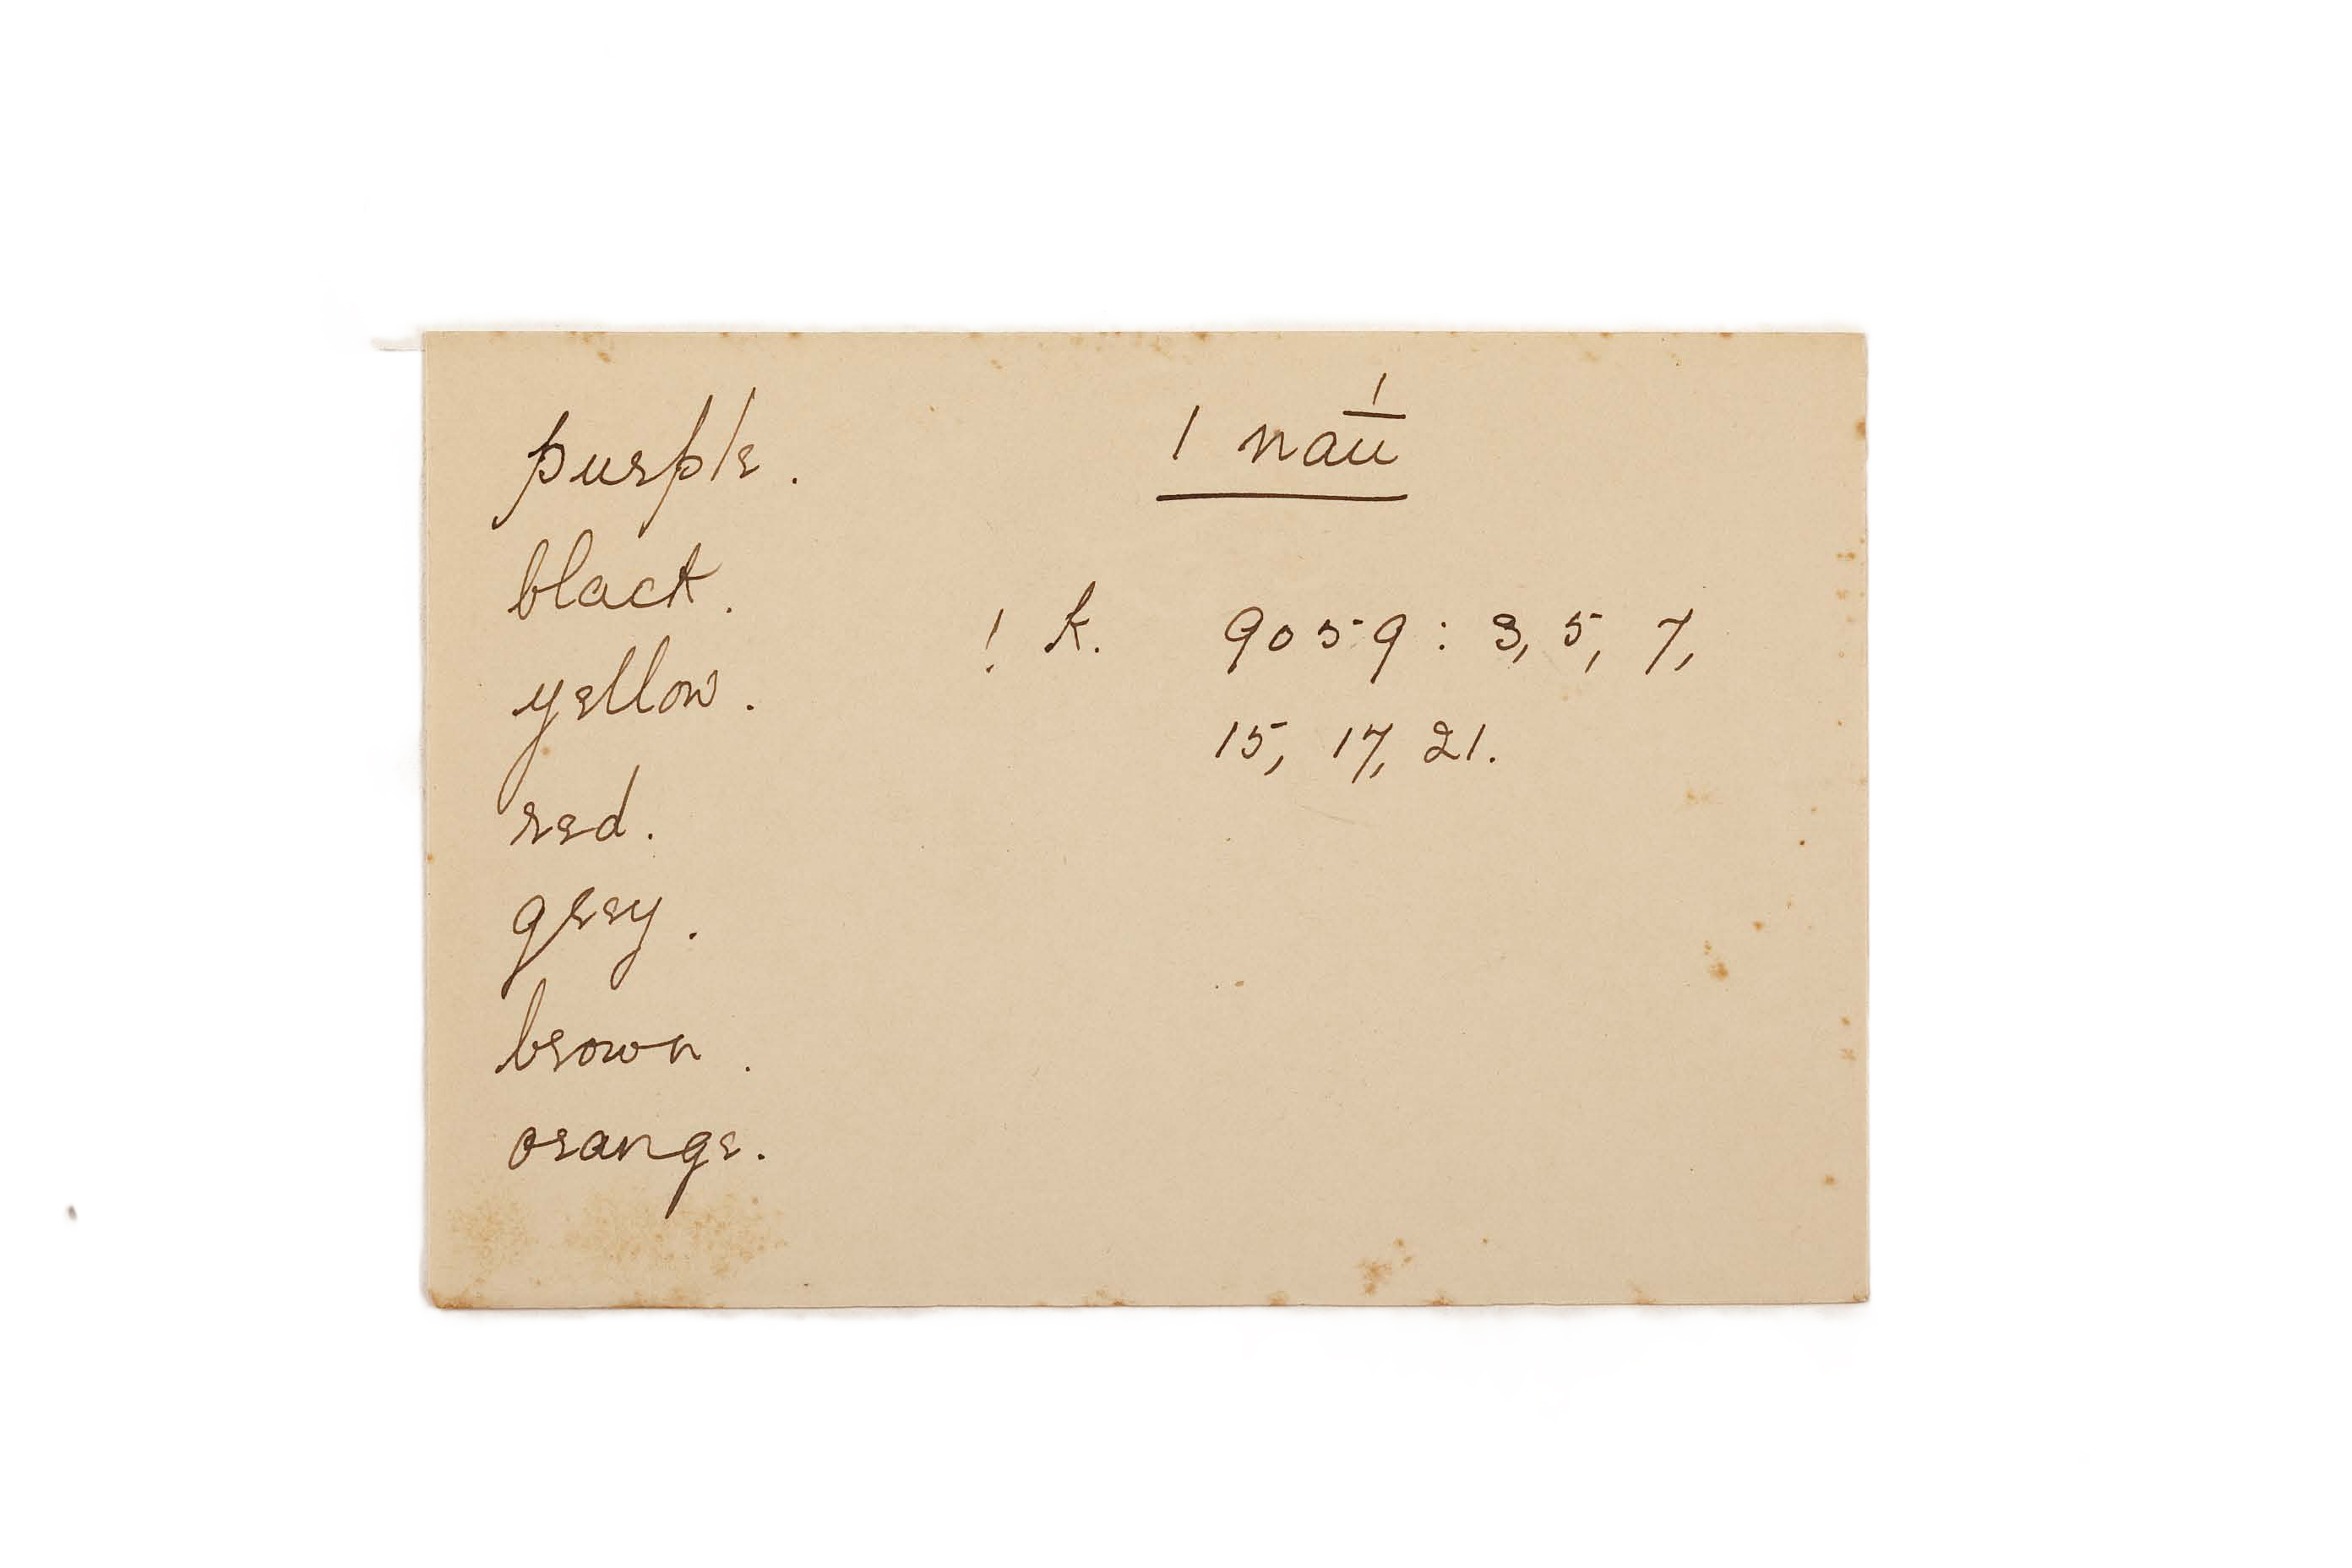 purple.
black.
yellow.
red.
grey.
brown.
orange.
| naū́
! k. 9059 : 3, 5, 7,
15, 17, 21.